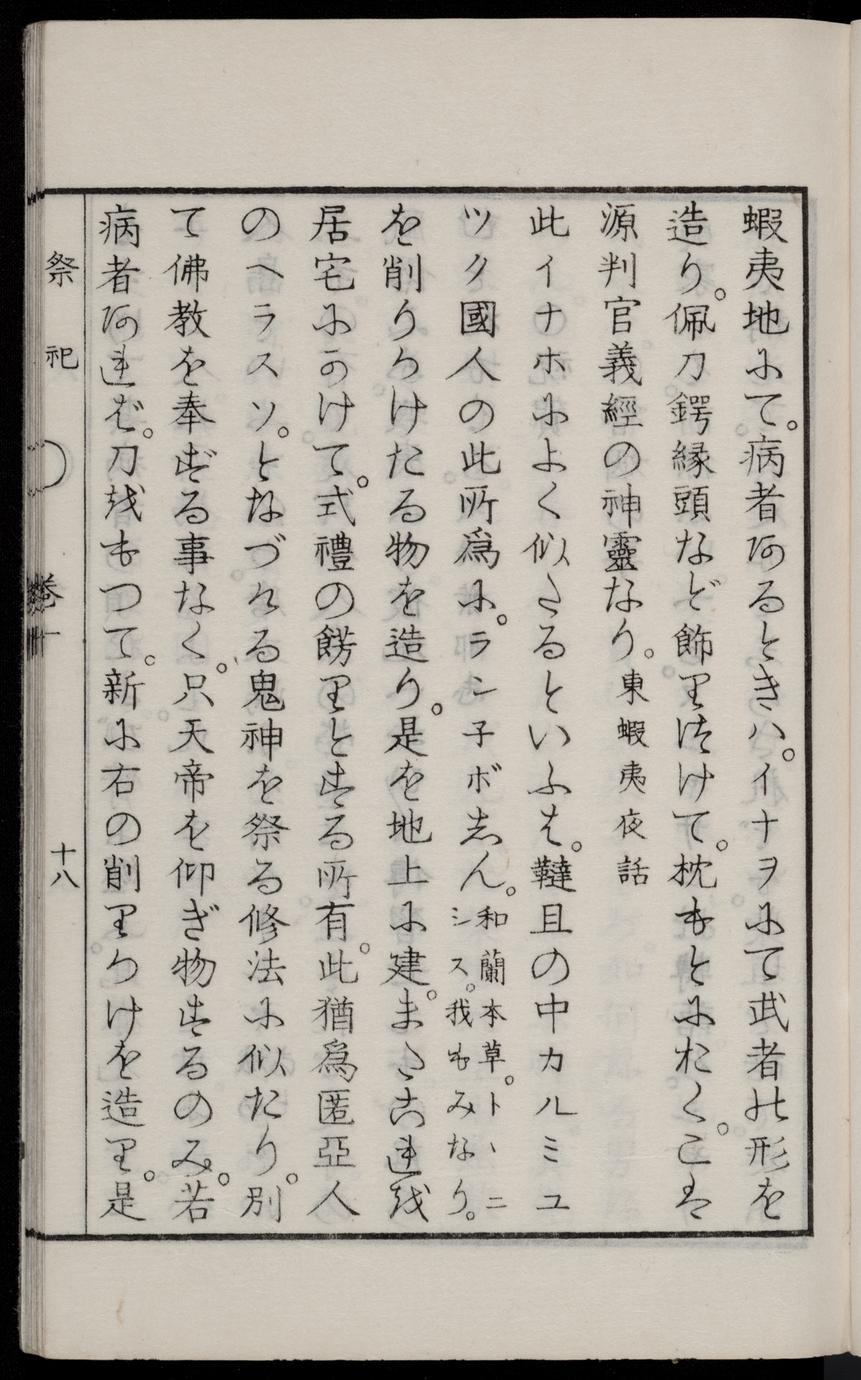 蝦夷地にて。病者あるときハ。イナヲにて武者の形を
造り。佩刀鍔縁頭など飾りつけて。枕もとにおく。こは
源判官義經の神靈なり。東蝦夷夜話
此イナホによく似たるといふは。韃且の中カルミユ
ツク國人の此所爲に。ラン子ボしん。和蘭本草。トヽニ
シス。我もみなり。
を削りかけたる物を造り。是を地上に建。またこれを
居宅にかけて。式禮の餝りとする所有。此猶爲匿亞人
のヘラスソ。となづくる鬼神を祭る修法に似たり。別
て佛教を奉ずる事なく。只天帝を仰ぎ物するのみ。若
病者あれば。刀をもつて。新に右の削りかけを造り。是
祭祀
卷十
十八